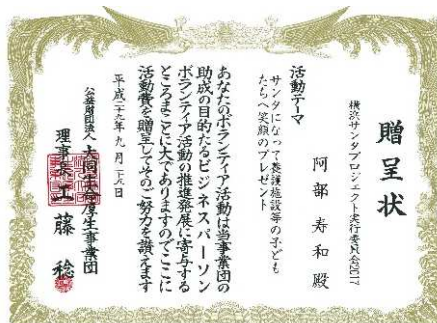 贈呈状
横浜サンタプロジェクト実行委員会2017
阿部寿和殿
活動テーマ
サンタになって養護施設等の子ども
たちへ笑顔のプレゼント
あなたのボランティア活動は当事業団の
助成の目的たるビジネスパーソン
ボランティア活動の推進発展に寄与する
ところまことに大でありますのでここに
活動費を贈呈してそのご努力を讃えます
平成二十九年九月二十八日
公益財団法人大同生命厚生事業団
理事長工藤稔